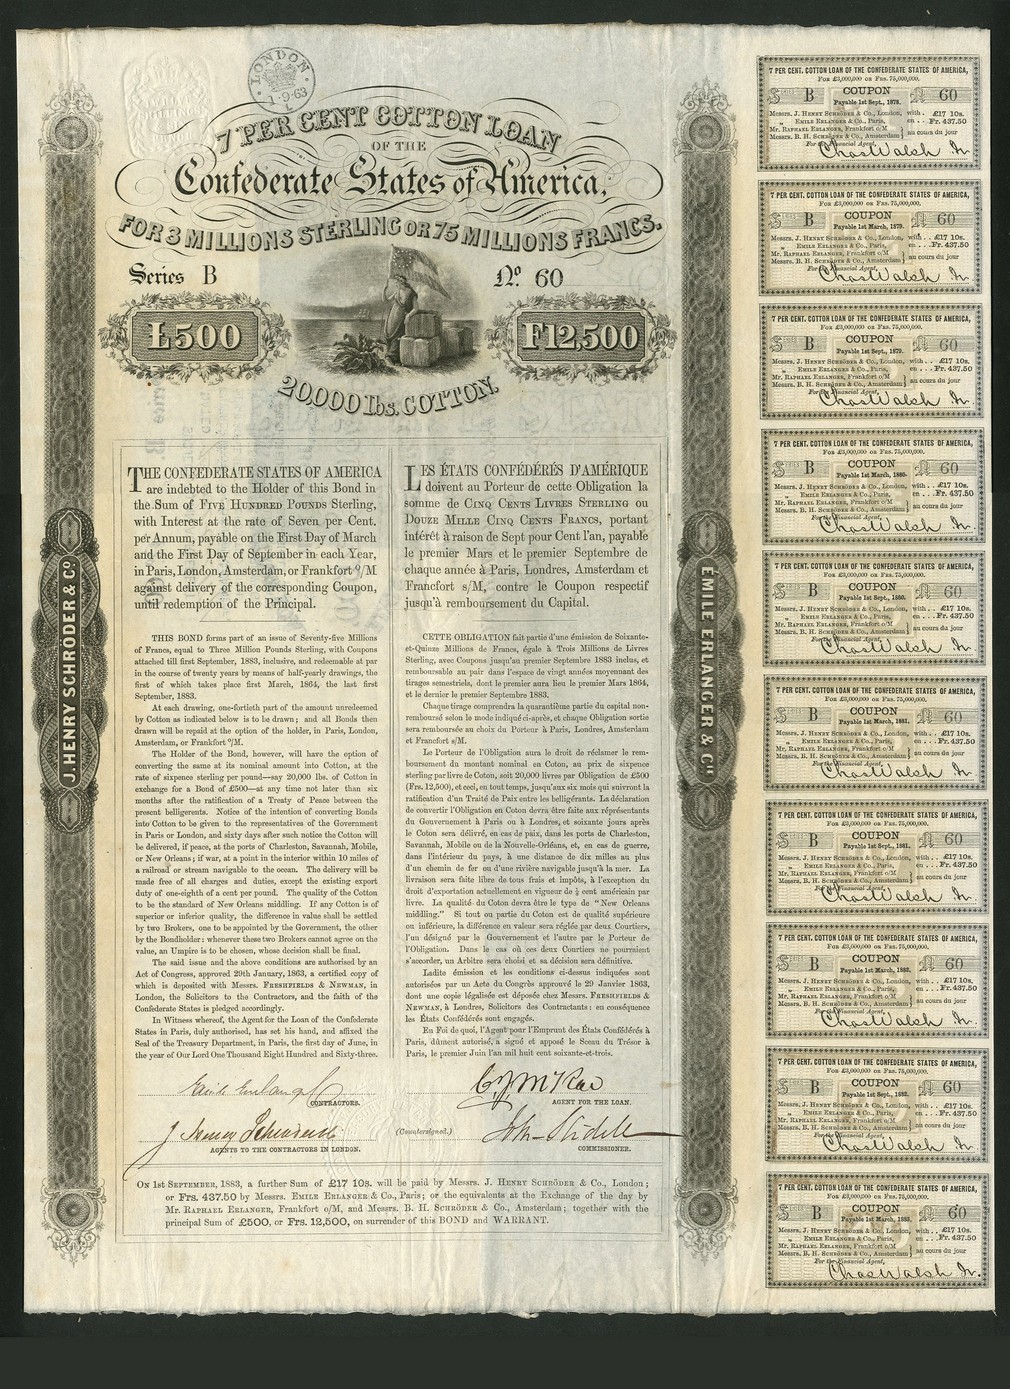 LONDON
1-9-63
L
7 PER CENT COTTON LOAN
OF THE
Confederate States of America,
FOR 3 MILLIONS STERLING OR 75 MILLIONS FRANCS.
Series B
No. 60
£500
F12,500
20,000 lbs. COTTON.
J. HENRY SCHRÖDER & Co.
EMILE ERLANGER & Cie
THE CONFEDERATE STATES OF AMERICA
are indebted to the Holder of this Bond in
the Sum of FIVE HUNDRED POUNDS Sterling,
with Interest at the rate of Seven per Cent.
per Annum, payable on the First Day of March
and the First Day of September in each Year,
in Paris, London, Amsterdam, or Frankfort o/M
against delivery of the corresponding Coupon,
until redemption of the Principal.
THIS BOND forms part of an issue of Seventy-five Millions
of Francs, equal to Three Million Pounds Sterling, with Coupons
attached till first September, 1883, inclusive, and redeemable at par
in the course of twenty years by means of half-yearly drawings, the
first of which takes place first March, 1864, the last first
September, 1883.
At each drawing, one-fortieth part of the amount unredeemed
by Cotton as indicated below is to be drawn; and all Bonds then
drawn will be repaid at the option of the holder, in Paris, London,
Amsterdam, or Frankfort o/M.
The Holder of the Bond, however, will have the option of
converting the same at its nominal amount into Cotton, at the
rate of sixpence sterling per pound—say 20,000 lbs. of Cotton in
exchange for a Bond of £500—at any time not later than six
months after the ratification of a Treaty of Peace between the
present belligerents. Notice of the intention of converting Bonds
into Cotton to be given to the representatives of the Government
in Paris or London, and sixty days after such notice the Cotton will
be delivered, if peace, at the ports of Charleston, Savannah, Mobile,
or New Orleans; if war, at a point in the interior within 10 miles of
a railroad or stream navigable to the ocean. The delivery will be
made free of all charges and duties, except the existing export
duty of one-eighth of a cent per pound. The quality of the Cotton
to be the standard of New Orleans middling. If any Cotton is of
superior or inferior quality, the difference in value shall be settled
by two Brokers, one to be appointed by the Government, the other
by the Bondholder: whenever these two Brokers cannot agree on the
value, an Umpire is to be chosen, whose decision shall be final.
The said issue and the above conditions are authorised by an
Act of Congress, approved 29th January, 1863, a certified copy of
which is deposited with Messrs. FRESHFIELDS & NEWMAN, in
London, the Solicitors to the Contractors, and the faith of the
Confederate States is pledged accordingly.
In Witness whereof, the Agent for the Loan of the Confederate
States in Paris, duly authorised, has set his hand, and affixed the
Seal of the Treasury Department, in Paris, the first day of June, in
the year of Our Lord One Thousand Eight Hundred and Sixty-three.
LES ÉTATS CONFÉDÉRÉS D'AMÉRIQUE
doivent au Porteur de cette Obligation la
somme de CINQ CENTS LIVRES STERLING OU
DOUZE MILLE CINQ CENTS FRANCS, portant
intérêt à raison de Sept pour Cent l'an, payable
le premier Mars et le premier Septembre de
chaque année à Paris, Londres, Amsterdam et
Francfort s/M, contre le Coupon respectif
jusqu'à remboursement du Capital.
CETTE OBLIGATION fait partie d'une émission de Soixante-
et-Quinze Millions de Francs, égale à Trois Millions de Livres
Sterling, avec Coupons jusqu'au premier Septembre 1883 inclus, et
remboursable au pair dans l'espace de vingt années moyennant des
tirages semestriels, dont le premier aura lieu le premier Mars 1864,
et le dernier le premier Septembre 1883.
Chaque tirage comprendra la quarantième partie du capital non-
remboursé selon le mode indiqué ci-après, et chaque Obligation sortie
sera remboursée au choix du Porteur à Paris, Londres, Amsterdam
et Francfort s/M.
Le Porteur de l'Obligation aura le droit de réclamer le rem-
boursement du montant nominal en Coton, au prix de sixpence
sterling par livre de Coton, soit 20,000 livres par Obligation de £500
(Frs. 12,500), et ceci, en tout temps, jusqu'aux six mois qui suivront la
ratification d'un Traité de Paix entre les belligérants. La déclaration
de convertir l'Obligation en Coton devra être faite aux représentants
du Gouvernement à Paris ou à Londres, et soixante jours après
le Coton sera délivré, en cas de paix, dans les ports de Charleston,
Savannah, Mobile ou de la Nouvelle-Orléans, et, en cas de guerre,
dans l'intérieur du pays, à une distance de dix milles au plus
d'un chemin de fer ou d'une rivière navigable jusqu'à la mer. La
livraison sera faite libre de tous frais et impôts, à l'exception du
droit d'exportation actuellement en vigueur de ⅛ cent américain par
livre. La qualité du Coton devra être le type de "New Orleans
middling." Si tout ou partie du Coton est de qualité supérieure
ou inférieure, la différence en valeur sera réglée par deux Courtiers,
l'un désigné par le Gouvernement et l'autre par le Porteur de
l'Obligation. Dans le cas où ces deux Courtiers ne pourraient
s'accorder, un Arbitre sera choisi et sa décision sera définitive.
Ladite émission et les conditions ci-dessus indiquées sont
autorisées par un Acte du Congrès approuvé le 29 Janvier 1863,
dont une copie légalisée est déposée chez Messrs. FRESHFIELDS &
NEWMAN, à Londres, Solicitors des Contractants: en conséquence
les États Confédérés sont engagés.
En Foi de quoi, l'Agent pour l'Emprunt des États Confédérés à
Paris, dûment autorisé, a signé et apposé le Sceau du Trésor à
Paris, le premier Juin l'an mil huit cent soixante-et-trois.
Emile Erlanger & Co
CONTRACTORS.
C. J. McRae
AGENT FOR THE LOAN.
J Henry Schroder & Co
AGENTS TO THE CONTRACTORS IN LONDON.
(Countersigned.)
John Slidell
COMMISSIONER.
ON 1ST SEPTEMBER, 1883, a further Sum of £17 10s. will be paid by Messrs. J. HENRY SCHRÖDER & Co., London;
or Frs. 437.50 by Messrs. EMILE ERLANGER & Co., Paris; or the equivalents at the Exchange of the day by
Mr. RAPHAEL ERLANGER, Frankfort o/M, and Messrs. B. H. SCHRÖDER & Co., Amsterdam; together with the
principal Sum of £500, or Frs. 12,500, on surrender of this BOND and WARRANT.
7 PER CENT. COTTON LOAN OF THE CONFEDERATE STATES OF AMERICA,
FOR £3,000,000 OR FRS. 75,000,000.
S B COUPON No 60
Payable 1st Sept., 1878.
Messrs. J. HENRY SCHRÖDER & Co., London, with . £17 10s.
„ EMILE ERLANGER & Co., Paris, en . . . Fr. 437.50
Mr. RAPHAEL ERLANGER, Frankfort o/M
Messrs. B. H. SCHRÖDER & Co., Amsterdam } au cours du jour
For the Financial Agent,
Chas Walsh Jr.
7 PER CENT. COTTON LOAN OF THE CONFEDERATE STATES OF AMERICA,
FOR £3,000,000 OR FRS. 75,000,000.
S B COUPON No 60
Payable 1st March, 1879.
Messrs. J. HENRY SCHRÖDER & Co., London, with . £17 10s.
„ EMILE ERLANGER & Co., Paris, en . . . Fr. 437.50
Mr. RAPHAEL ERLANGER, Frankfort o/M
Messrs. B. H. SCHRÖDER & Co., Amsterdam } au cours du jour
For the Financial Agent,
Chas Walsh Jr.
7 PER CENT. COTTON LOAN OF THE CONFEDERATE STATES OF AMERICA,
FOR £3,000,000 OR FRS. 75,000,000.
S B COUPON No 60
Payable 1st Sept., 1879.
Messrs. J. HENRY SCHRÖDER & Co., London, with . . £17 10s.
„ EMILE ERLANGER & Co., Paris, en . . . Fr. 437.50
Mr. RAPHAEL ERLANGER, Frankfort o/M
Messrs. B. H. SCHRÖDER & Co., Amsterdam } au cours du jour
For the Financial Agent,
Chas Walsh Jr.
7 PER CENT. COTTON LOAN OF THE CONFEDERATE STATES OF AMERICA,
FOR £3,000,000 OR FRS. 75,000,000.
S B COUPON No 60
Payable 1st March, 1880.
Messrs. J. HENRY SCHRÖDER & Co., London, with . . £17 10s.
„ EMILE ERLANGER & Co., Paris, en . . . Fr. 437.50
Mr. RAPHAEL ERLANGER, Frankfort o/M
Messrs. B. H. SCHRÖDER & Co., Amsterdam } au cours du jour
For the Financial Agent,
Chas Walsh Jr.
7 PER CENT. COTTON LOAN OF THE CONFEDERATE STATES OF AMERICA,
FOR £3,000,000 OR FRS. 75,000,000.
S B COUPON No 60
Payable 1st Sept., 1880.
Messrs. J. HENRY SCHRÖDER & Co., London, with . . £17 10s.
„ EMILE ERLANGER & Co., Paris, en . . . Fr. 437.50
Mr. RAPHAEL ERLANGER, Frankfort o/M
Messrs. B. H. SCHRÖDER & Co., Amsterdam } au cours du jour
For the Financial Agent,
Chas Walsh Jr.
7 PER CENT. COTTON LOAN OF THE CONFEDERATE STATES OF AMERICA,
FOR £3,000,000 OR FRS. 75,000,000.
S B COUPON No 60
Payable 1st March, 1881.
Messrs. J. HENRY SCHRÖDER & Co., London, with . . £17 10s.
„ EMILE ERLANGER & Co., Paris, en . . . Fr. 437.50
Mr. RAPHAEL ERLANGER, Frankfort o/M
Messrs. B. H. SCHRÖDER & Co., Amsterdam } au cours du jour
For the Financial Agent,
Chas Walsh Jr.
7 PER CENT. COTTON LOAN OF THE CONFEDERATE STATES OF AMERICA,
FOR £3,000,000 OR FRS. 75,000,000.
S B COUPON No 60
Payable 1st Sept., 1881.
Messrs. J. HENRY SCHRÖDER & Co., London, with . . £17 10s.
„ EMILE ERLANGER & Co., Paris, en . . . Fr. 437.50
Mr. RAPHAEL ERLANGER, Frankfort o/M
Messrs. B. H. SCHRÖDER & Co., Amsterdam } au cours du jour
For the Financial Agent,
Chas Walsh Jr.
7 PER CENT. COTTON LOAN OF THE CONFEDERATE STATES OF AMERICA,
FOR £3,000,000 OR FRS. 75,000,000.
S B COUPON No 60
Payable 1st March, 1882.
Messrs. J. HENRY SCHRÖDER & Co., London, with . . £17 10s.
„ EMILE ERLANGER & Co., Paris, en . . . Fr. 437.50
Mr. RAPHAEL ERLANGER, Frankfort o/M
Messrs. B. H. SCHRÖDER & Co., Amsterdam } au cours du jour
For the Financial Agent,
Chas Walsh Jr.
7 PER CENT. COTTON LOAN OF THE CONFEDERATE STATES OF AMERICA,
FOR £3,000,000 OR FRS. 75,000,000.
S B COUPON No 60
Payable 1st Sept., 1882.
Messrs. J. HENRY SCHRÖDER & Co., London, with . . £17 10s.
„ EMILE ERLANGER & Co., Paris, en . . . Fr. 437.50
Mr. RAPHAEL ERLANGER, Frankfort o/M
Messrs. B. H. SCHRÖDER & Co., Amsterdam } au cours du jour
For the Financial Agent,
Chas Walsh Jr.
7 PER CENT. COTTON LOAN OF THE CONFEDERATE STATES OF AMERICA,
FOR £3,000,000 OR FRS. 75,000,000.
S B COUPON No 60
Payable 1st March, 1883.
Messrs. J. HENRY SCHRÖDER & Co., London, with . . £17 10s.
„ EMILE ERLANGER & Co., Paris, en . . . Fr. 437.50
Mr. RAPHAEL ERLANGER, Frankfort o/M
Messrs. B. H. SCHRÖDER & Co., Amsterdam } au cours du jour
For the Financial Agent,
Chas Walsh Jr.